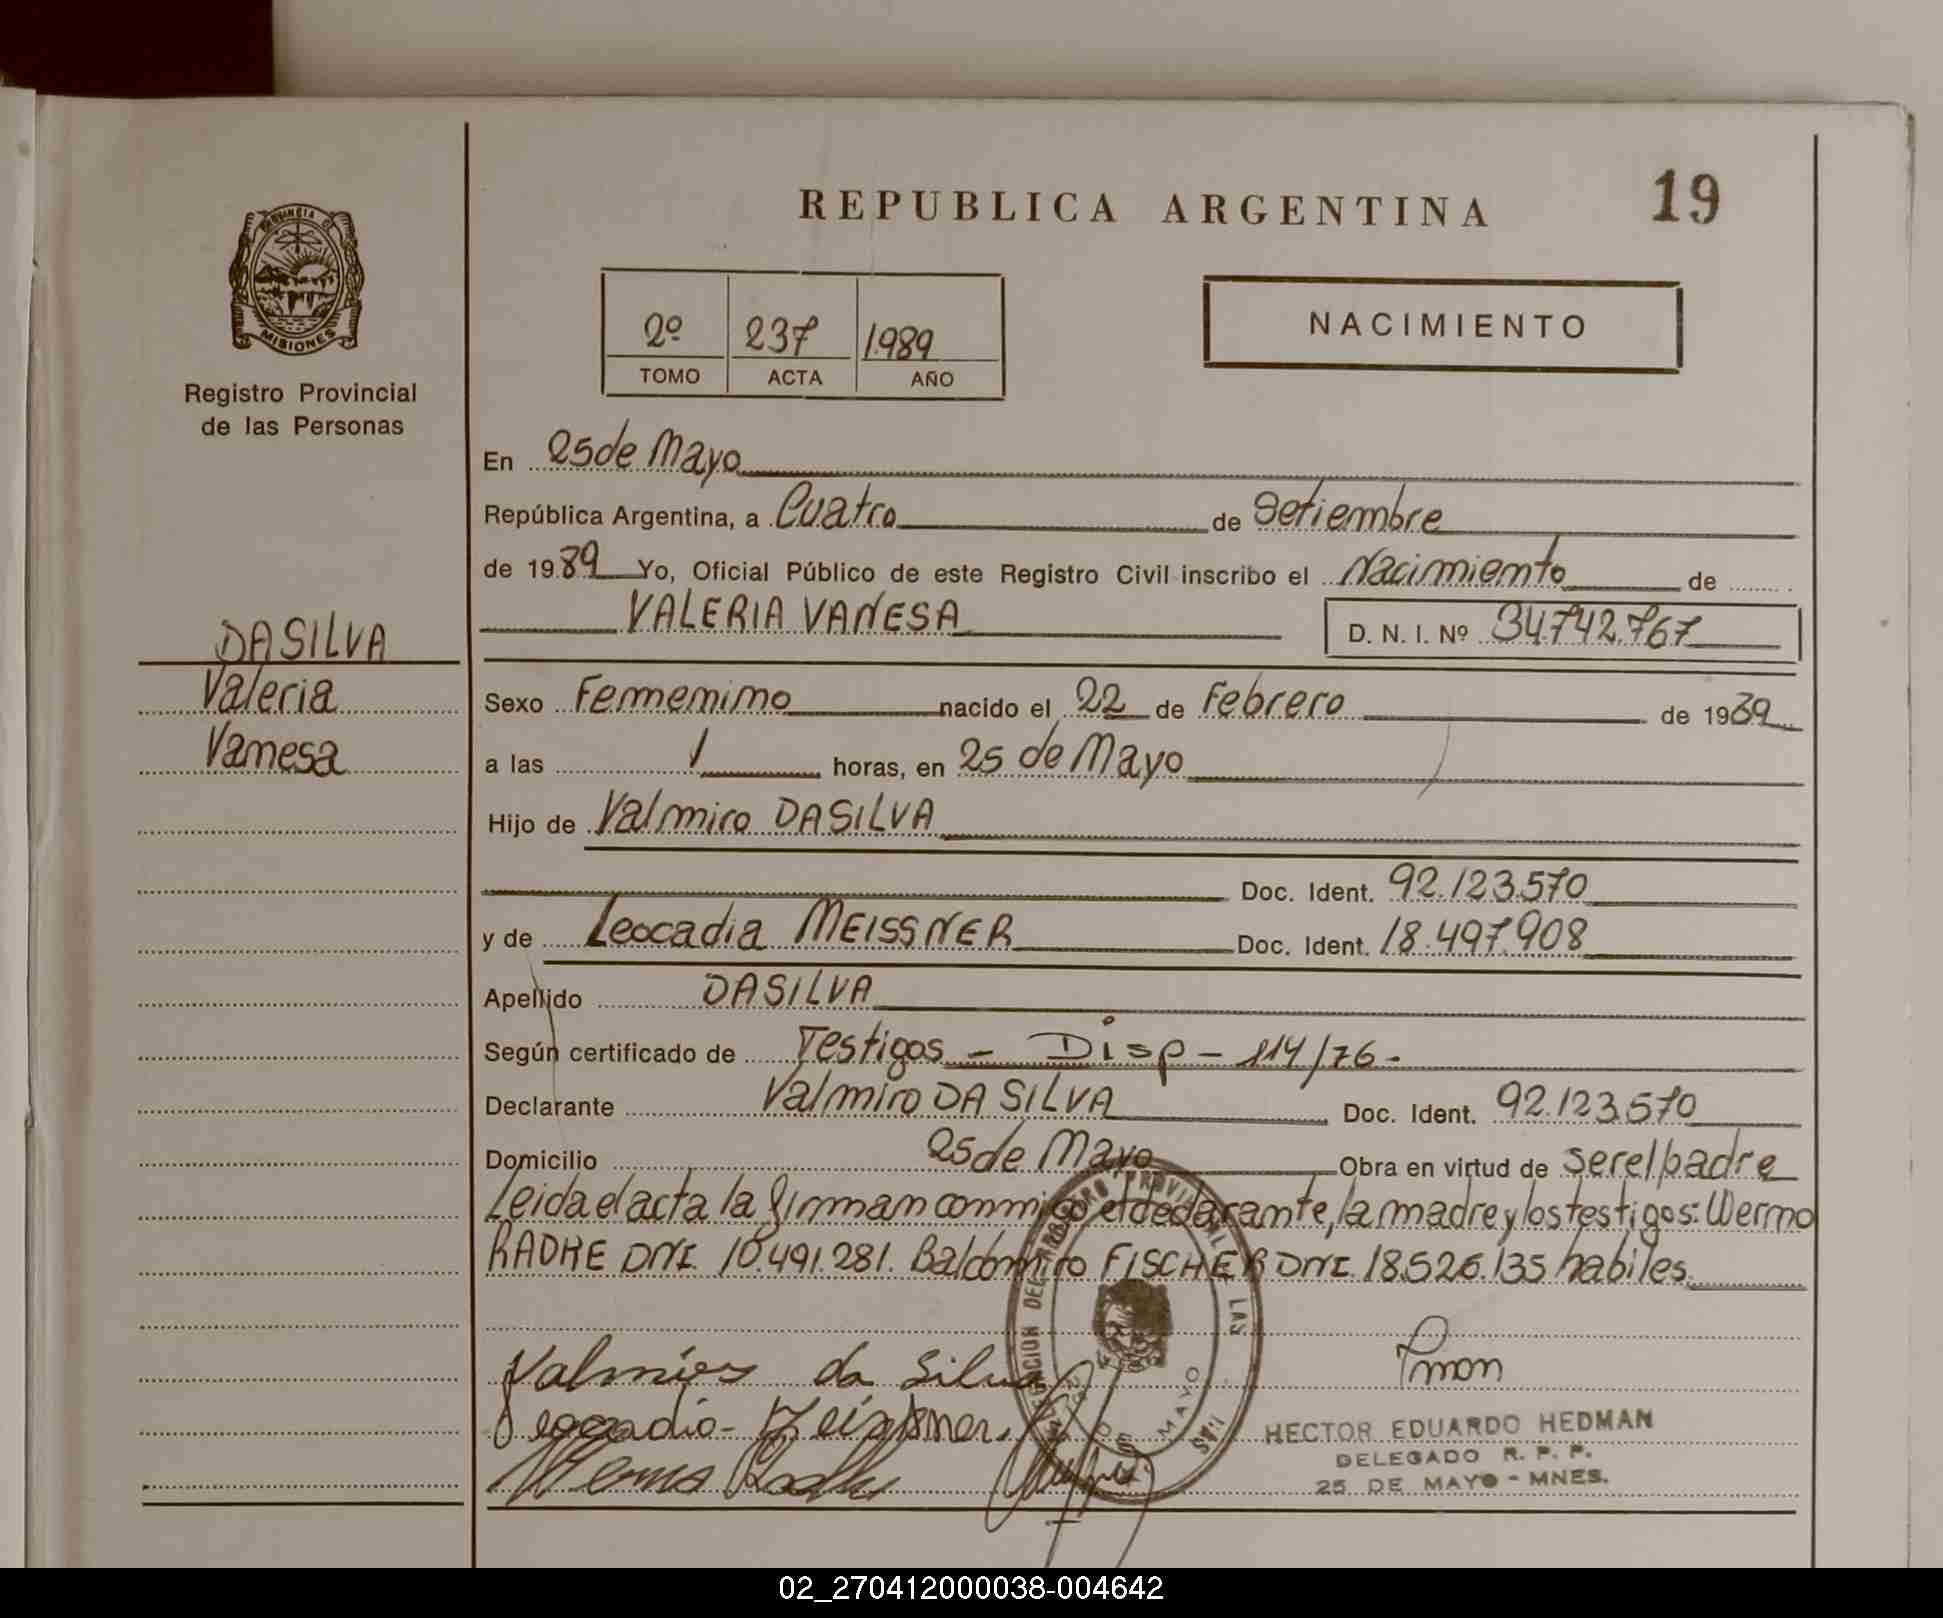 REPUBLICA ARGENTINA
19
PROVINCIA D
MISIONES
Registro Provincial
de las Personas
2º 237 1989
TOMO ACTA AÑO
NACIMIENTO
En 25 de Mayo
República Argentina, a Cuatro de Setiembre
de 1989 Yo, Oficial Público de este Registro Civil inscribo el Nacimiento de
VALERIA VANESA
D. N. I. Nº 34.742.767
DA SILVA
Valeria
Vanesa
Sexo Femenino nacido el 22 de Febrero de 1989
a las 1 horas, en 25 de Mayo
Hijo de Valmiro DA SILVA
Doc. Ident. 92.123.570
y de Leocadia MEISSNER Doc. Ident. 18.497.908
Apellido DA SILVA
Según certificado de Testigos - Disp - 114/76 -
Declarante Valmiro DA SILVA Doc. Ident. 92.123.570
Domicilio 25 de Mayo Obra en virtud de ser el padre
Leida el acta la firman conmigo el declarante, la madre y los testigos: Werno
RADKE DNI. 10.491.281. Baldomiro FISCHER DNI. 18.526.135 habiles
Valmiro da Silva
HECTOR EDUARDO HEDMAN
DELEGADO R. P. P.
25 DE MAYO - MNES.
DELEGACION DEL REGISTRO PROVINCIAL LAS
25 DE MAYO
02_270412000038-004642